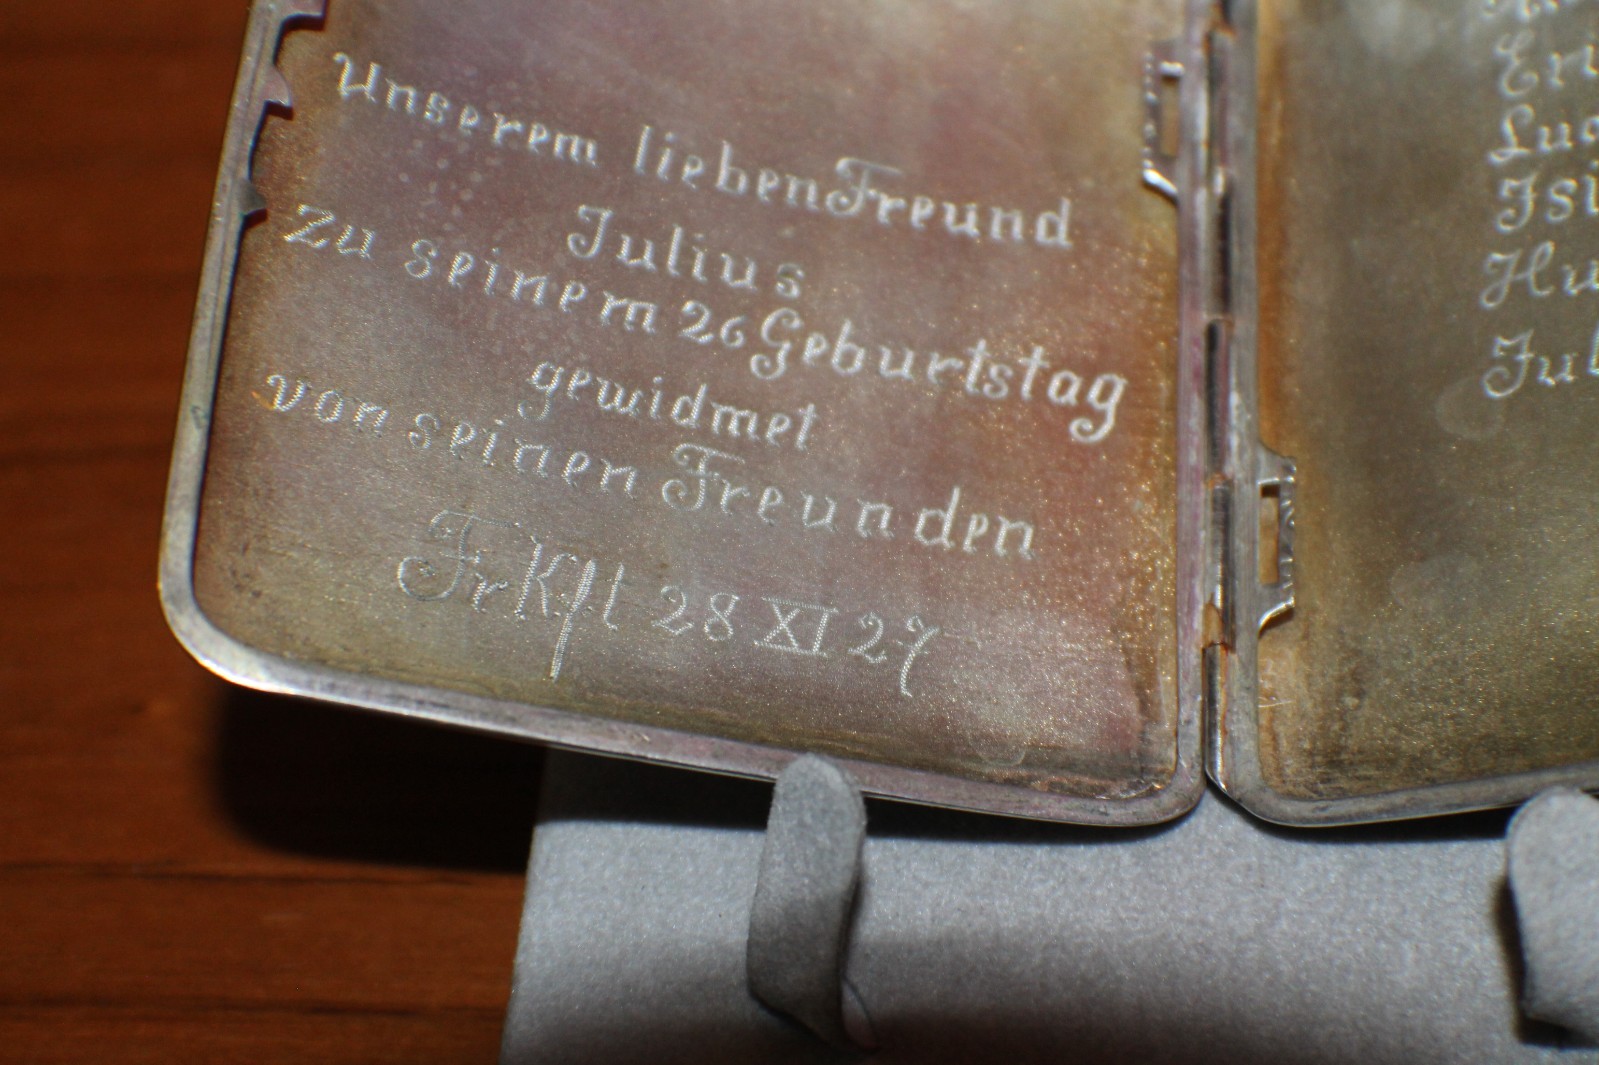 Unserem lieben Freund
Julius
Zu seinem 26 Geburtstag
gewidmet
von seinen Freunden
FrKft 28 XI 27
Hu
Jul